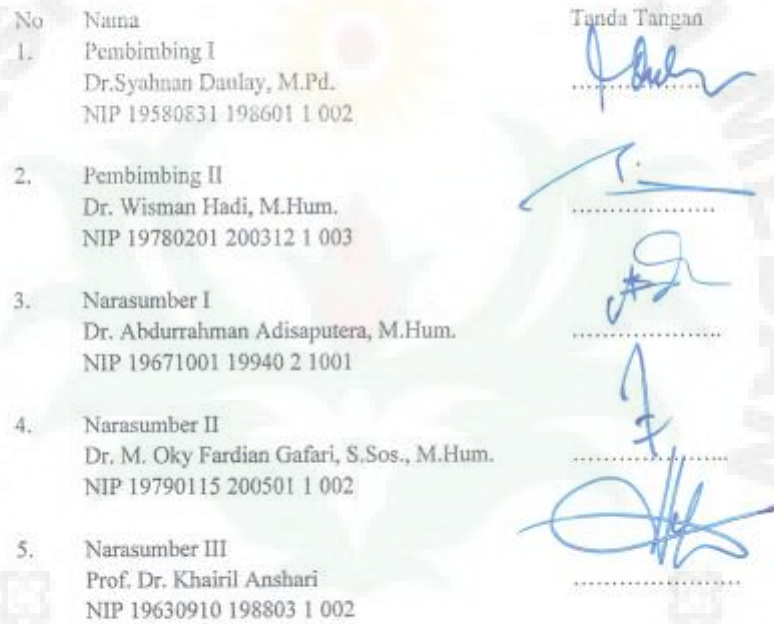 No Nama Tanda Tangan
1. Pembimbing I
Dr.Syahnan Daulay, M.Pd.
NIP 19580831 198601 1 002
2. Pembimbing II
Dr. Wisman Hadi, M.Hum.
NIP 19780201 200312 1 003
3. Narasumber I
Dr. Abdurrahman Adisaputera, M.Hum.
NIP 19671001 19940 2 1001
4. Narasumber II
Dr. M. Oky Fardian Gafari, S.Sos., M.Hum.
NIP 19790115 200501 1 002
5. Narasumber III
Prof. Dr. Khairil Anshari
NIP 19630910 198803 1 002